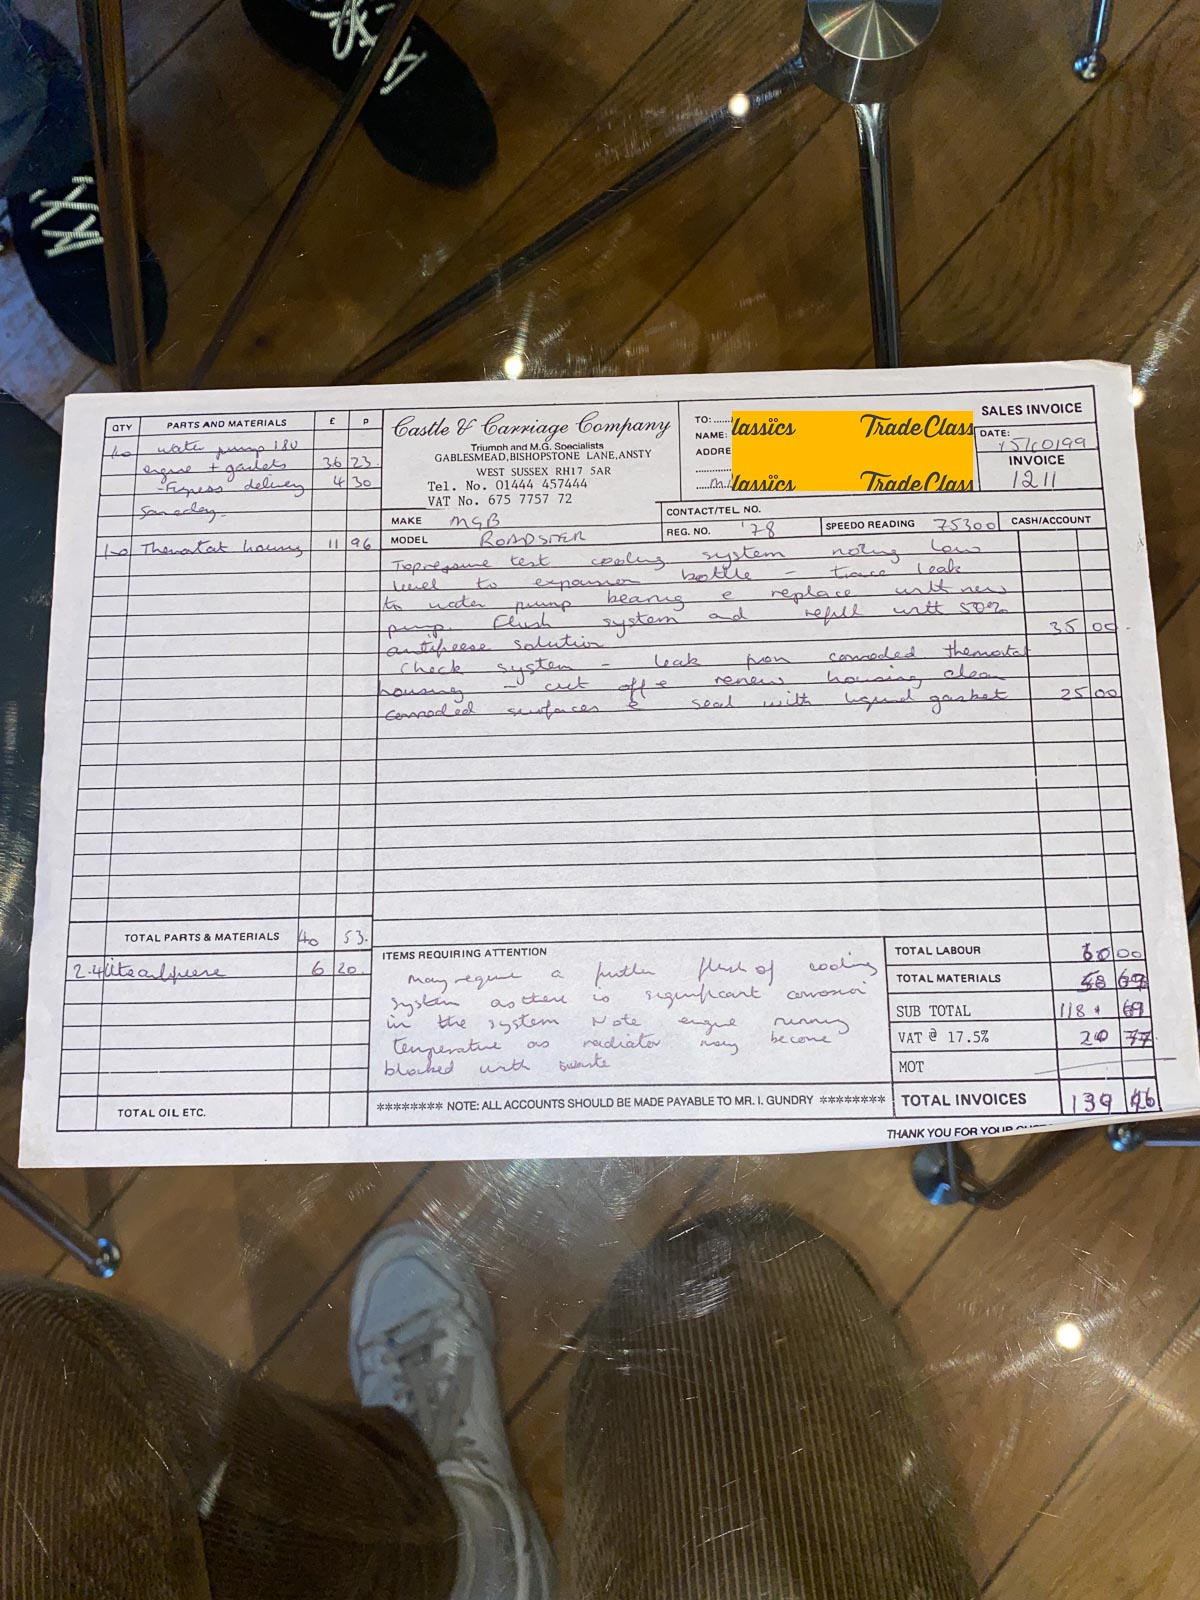 QTY PARTS AND MATERIALS £ P
1.0 water pump 18V
engine + gaskets 36 23
- Express delivery 4 30
Sameday
1.0 Thermostat housing 11 96
TOTAL PARTS & MATERIALS 40 53.
2.4 6 20.
TOTAL OIL ETC.
Castle & Carriage Company
Triumph and M.G. Specialists
GABLESMEAD, BISHOPSTONE LANE, ANSTY
WEST SUSSEX RH17 5AR
Tel. No. 01444 457444
VAT No. 675 7757 72
TO:
NAME:
ADDRE
lassics TradeClass
lassics TradeClass
SALES INVOICE
DATE:
INVOICE
1211
MAKE MGB
MODEL ROADSTER
CONTACT/TEL. NO.
REG. NO. '78
SPEEDO READING 75300
CASH/ACCOUNT
To pressure test cooling system noting low
level to expansion bottle - trace leak
to water pump bearing & replace with new
pump. Flush system and refill with 50%
antifreese solution 35 00
Check system - leak from corroded thermostat
housing - cut off & renew housing clean
corroded surfaces & seal with liquid gasket 25 00
ITEMS REQUIRING ATTENTION
May require a further flush of cooling
system as there is significant corrosion
in the system Note engine running
temperature as radiator may become
blocked with waste
******** NOTE: ALL ACCOUNTS SHOULD BE MADE PAYABLE TO MR. I. GUNDRY ********
TOTAL LABOUR 60 00
TOTAL MATERIALS 58 69
SUB TOTAL 118 69
VAT @ 17.5% 20 77
MOT
TOTAL INVOICES 139 46
THANK YOU FOR YOUR